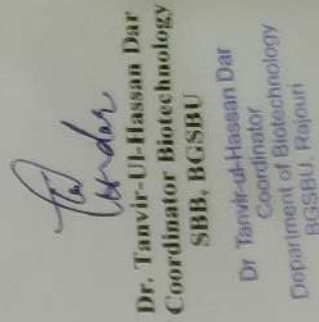 Dr. Tanvir-Ul-Hassan Dar
Coordinator Biotechnology
SBB, BGSBU
Dr Tanvir-ul-Hassan Dar
Coordinator
Department of Biotechnology
BGSBU, Rajouri